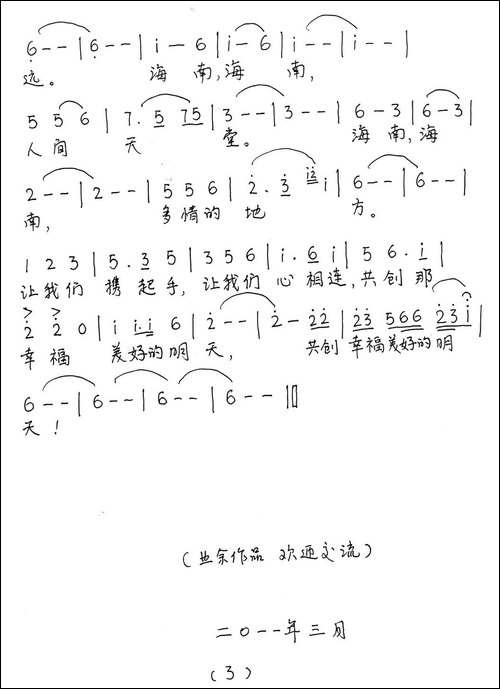 6 - - | 6 - - | i - 6 | i - 6 | i - - | i - - |
远。 海 南,海 南,
5 5 6 | 7. 5 75 | 3 - - | 3 - - | 6 - 3 | 6 - 3 |
人间 天 堂。 海 南,海
2 - - | 2 - - | 5 5 6 | 2̇. 3̇ i̇2̇ i | 6 - - | 6 - - |
南, 多情的 地 方。
1 2 3 | 5. 3 5 | 3 5 6 | i. 6 i | 5 6. i |
让我们 携 起手,让我们 心 相连,共创那
> >
2̇ 2̇ 0 | i i.i 6 | 2̇ - - | 2̇ - 2̇2̇ | 2̇3̇ 566 2̇3̇i |
幸 福 美好的明 天, 共创 幸福美好的明
6 - - | 6 - - | 6 - - | 6 - - ||
天!
(业余作品 欢迎交流)
二〇一一年三月
(3)